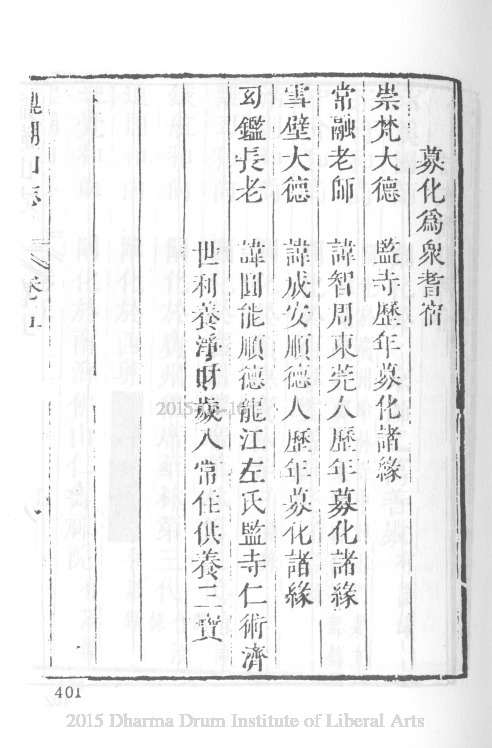 募化爲衆耆宿
崇梵大德 監寺歷年募化諸緣
常融老師 諱智周東莞人歷年募化諸緣
雪壁大德 諱成安順德人歷年募化諸緣
幻鑑長老 諱圓能順德龍江左氏監寺仁術濟
世利養淨財歲入常住供養三寶
鼎湖山志 卷五
2015
401
2015 Dharma Drum Institute of Liberal Arts